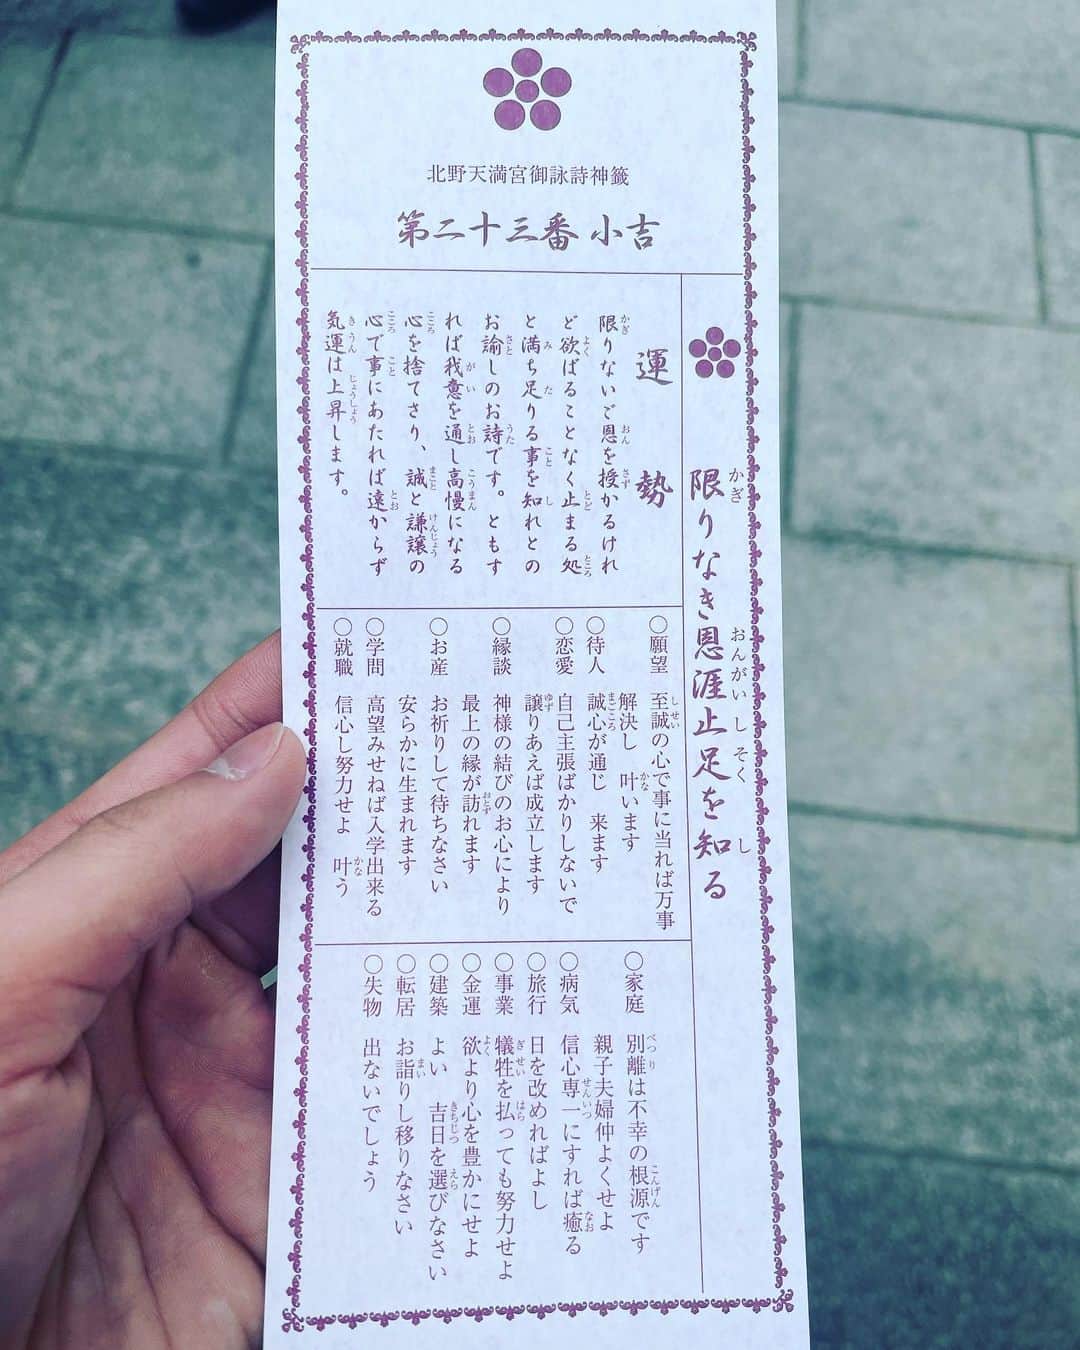 北野天満宮御詠詩神籤
第二十三番 小吉
限りなき恩涯止足を知る
運勢
限りないご恩を授かるけれ
ど欲ばることなく止まる処
と満ち足りる事を知れとの
お諭しのお詩です。ともす
れば我意を通し高慢になる
心を捨てさり、誠と謙譲の
心で事にあたれば遠からず
気運は上昇します。
○願望 至誠の心で事に当れば万事
解決し 叶います
○待人 誠心が通じ 来ます
○恋愛 自己主張ばかりしないで
譲りあえば成立します
○縁談 神様の結びのお心により
最上の縁が訪れます
○お産 お祈りして待ちなさい
安らかに生まれます
○学問 高望みせねば入学出来る
○就職 信心し努力せよ 叶う
○家庭 別離は不幸の根源です
親子夫婦仲よくせよ
○病気 信心専一にすれば癒る
○旅行 日を改めればよし
○事業 犠牲を払っても努力せよ
○金運 欲より心を豊かにせよ
○建築 よい 吉日を選びなさい
○転居 お詣りし移りなさい
○失物 出ないでしょう